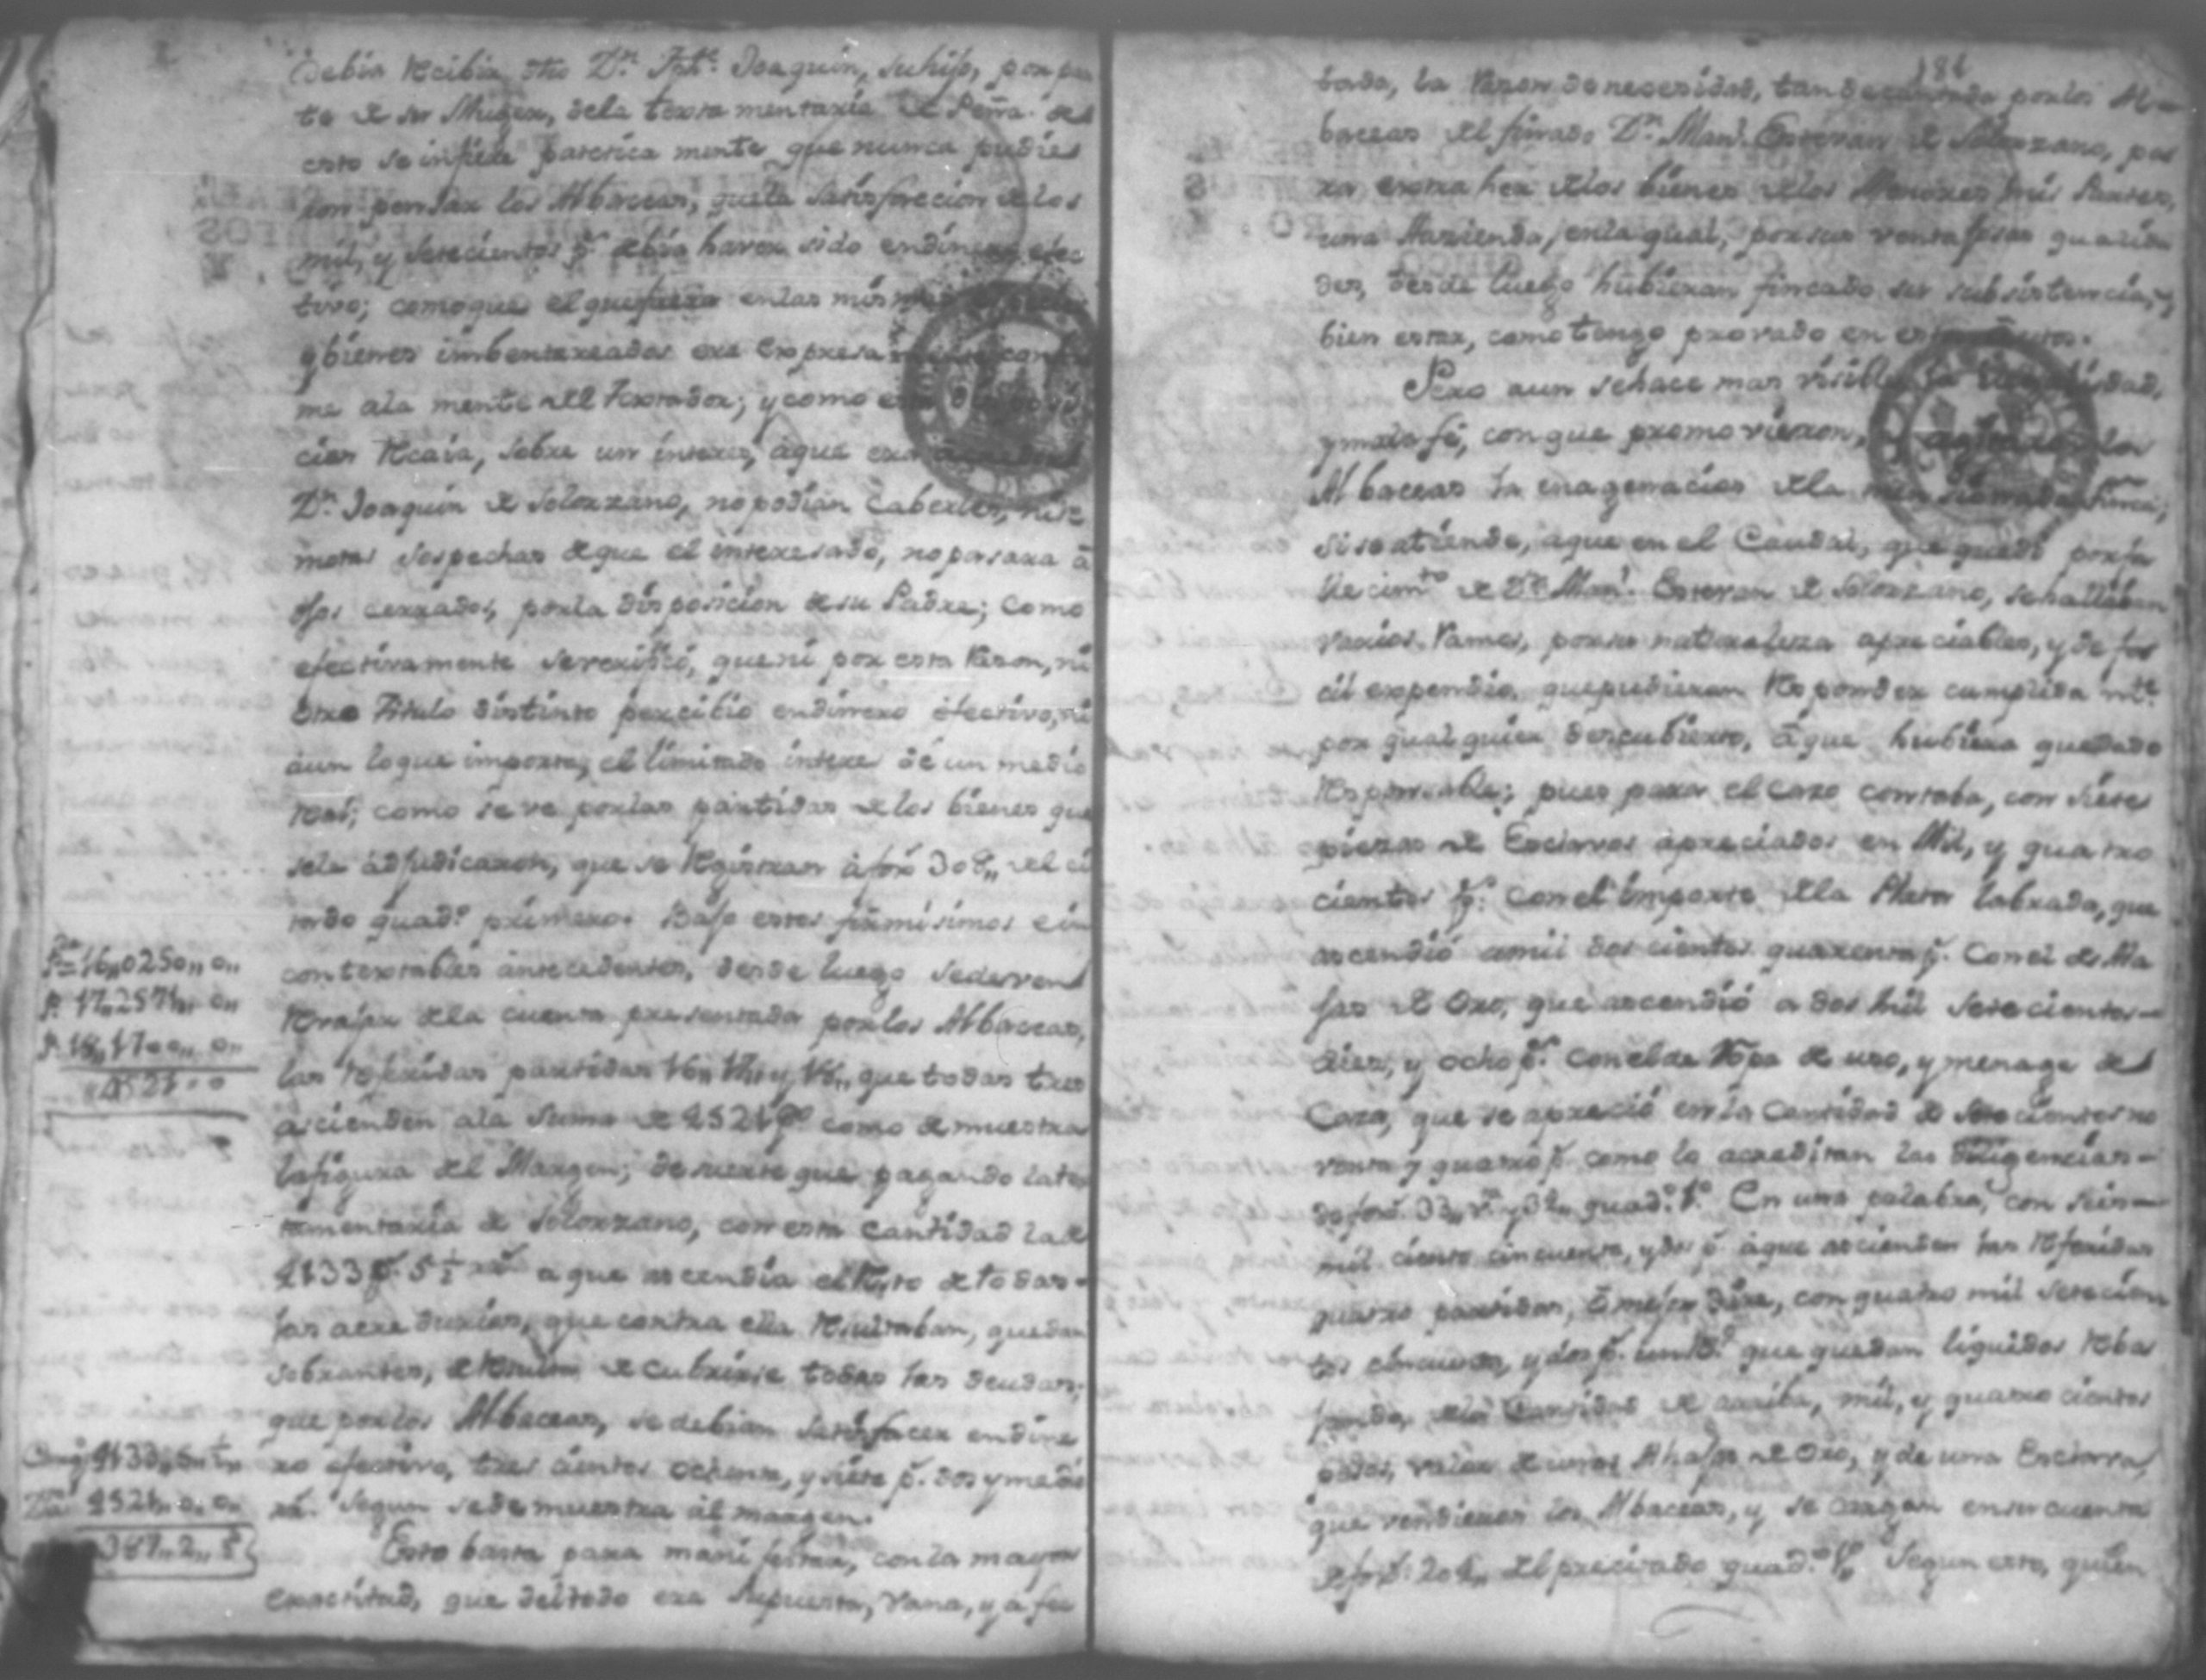 debia Recibir dho Dn. Jph. Joaquin, su hijo, por par
te de su Muger, dela testamentaria de Peña. de
esto se infiere que nunca pudie
ron pensar los Albaceas, que la satisfaccion delos
mil, y setecientos ps. debia haver sido endinero efec
tivo; como que el que fuera enlas mismas
y bienes imbentareados era expresa
me ala mente del Testador; y como
cion Recaia, sobre un interes, aque era
Dn. Joaquin de Solorzano, no podian caberles, ni re
motas sospechas deque el interesado, no pasara â
ojos cerrados, porla disposicion de su Padre; como
efectivamente se verificó, que ni por esta Razon, ni
otro Titulo distinto percibio endinero efectivo, ni
aun loque importa, el limitado interes de un medio
Real; como se ve porlas partidas delos bienes que
sele adjudicaron, que se Registran áfoxs 308,, del ci
tado quadno. primero. Bajo estos firmisimos é in
contextables antecedentes, desde luego sedeven
Rebajar dela cuenta presentada porlos Albaceas,
las Referidas partidas 16,, 17,, y 18,, que todas tres
ascienden ala suma de 4521 ps. como demuestra
lafigura del Margen; de suerte que pagando lates
tamentaria de Solorzano, con esta cantidad la de
4133 ps. 5 1/2 rs. aque ascendia el Resto de todas
las acredurias, que contra ella Resultaban, quedan
sobrantes, de cubrirse todas las deudas,
que porlos Albaceas, se debian satisfacer endine
ro efectivo, tres cientos ochenta, y siete ps. dos y medio
rs. Segun se demuestra al margen.
Esto basta para manifestar, con la mayor
exactitud, que deltodo era supuesta, vana, y afec
16,,0250,,0,,
p. 17,,2571,,0,,
p. 18,,1700,,0,,
4521,,0
4133,,5,,
4521,,0,,0,,
387,,2,,
181
tada, la Razon de necesidad, tan decantada porlos Al
baceas del finado Dn. Manl. Estevan de Solorzano, pa
ra extraher delos bienes delos Menores mis Partes,
una Hazienda, enla qual, porsus ventajosas qualida
des, desde luego hubieran fincado su subsistencia, y
bien estar, como tengo provado en
Pero aun sehace mas visible la
y mala fé, con que promovieron, los
Albaceas la enagenacion dela Finca;
si se atiende, a que en el Caudal, que quedó porfa
llecimto. de Dn. Manl. Estevan de Solorzano, se hallaban
varios Ramos, porsu naturaleza apreciables, y de fa
cil expendio, que pudieran Responder cumplida mte.
por qualquier descubierto, á que hubiera quedado
Responsable; pues para el caso contaba, con siete
piezas de Esclavos apreciados en Mil, y quatro
cientos ps. Con el importe dela Plata labrada, que
ascendió amil doscientos quarenta ps. Con el de Ala
jas de Oro, que ascendió a dos mil setecientos
diez, y ocho ps. Con el de Ropa de uso, y menage de
Casa, que se apreció en la Cantidad de Setecientos no
venta y quatro ps. como lo acreditan las diligencias
quadno. 1o. En una palabra, con seis
mil ciento cincuenta, y dos ps. aque ascienden las Referidas
quatro partidas, ó mejor dire, con quatro mil setecien
tos cincuenta, y dos ps. que quedan liquidos Reba
jando, dela Cantidad de arriba, mil, y quatrocientos
pesos, valor de unas Alhajas de Oro, y de una Esclava,
que vendieron los Albaceas, y se cargan ensu cuenta
204,, del precitado quadno. 1o. Segun esto, quien